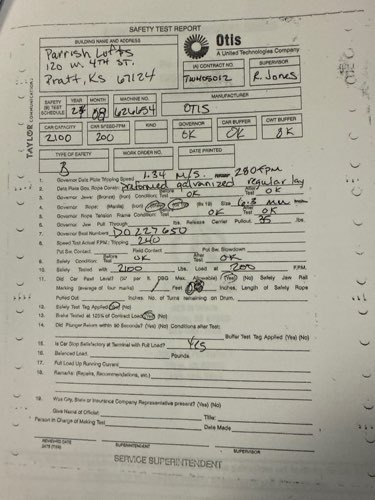 SAFETY TEST REPORT
BUILDING NAME AND ADDRESS
Parrish Lofts
120 W. 4TH ST.
Pratt, KS 67124
Otis
A United Technologies Company
CONTRACT NO.
SUPERVISOR
R. Jones
SAFETY (B) TEST SCHEDULE
YEAR
MONTH
08
MACHINE NO.
626654
MANUFACTURER
OTIS
CAR CAPACITY
2100
CAR SPEED-FPM
200
KIND
GOVERNOR
OK
CAR BUFFER
OK
CWT BUFFER
OK
TYPE OF SAFETY
B
WORK ORDER NO.
DATE PRINTED
1. Governor Data Plate Tripping Speed 1.34 M/S. 280 fpm
2. Data Plate Gov. Rope Condn preformed galvanized regular lay
3. Governor Jaws: (Bronze) (Iron) Condition: OK After Test OK
4. Governor Rope: (Manila) (Iron) (8x19) Size 6.3 mm
5. Governor Rope Tension Frame Condition: OK Test OK
6. Governor Jaw Pull Through lbs. Release Carrier Pullout 35 lbs
7. Governor Seal Numbers DO227650
8. Speed Test Actual FPM.: Tripping 240
Pot Sw. Contact Field Contact Pot Sw. Slowdown
9. Safety Condition: Before Test OK After Test OK
10. Safety Tested with 2100 Lbs. Load at 200 F.P.M.
11. Did Car Plate Level? (1/2" per ft. DBG Max. Allowable) (Yes) (No) Safety Jaw Rail
Marking (average of four marks) Feet 08 Inches; Length of Safety Rope
Pulled Out Inches: No. of Turns remaining on Drum.
12. Safety Test Tag Applied (Yes) (No)
13. Brake Tested at 125% of Contract Load (Yes) (No)
14. Did Plunger Return within 90 Seconds? (Yes) (No) Conditions after Test:
Buffer Test Tag Applied (Yes) (No)
15. Is Car Stop Satisfactory at Terminal with Full Load? Yes
16. Balanced Load: Pounds
17. Full Load Up Running Current
18. Remarks: (Repairs, Recommendations, etc.)
19. Was City, State or Insurance Company Representative present? (Yes) (No)
Give Name of Official: Title:
Person in Charge of Making Test Date Made
REVIEWED DATE
SUPERINTENDENT
SUPERVISOR
SERVICE SUPERINTENDENT
TAYLOR COMMUNICATIONS